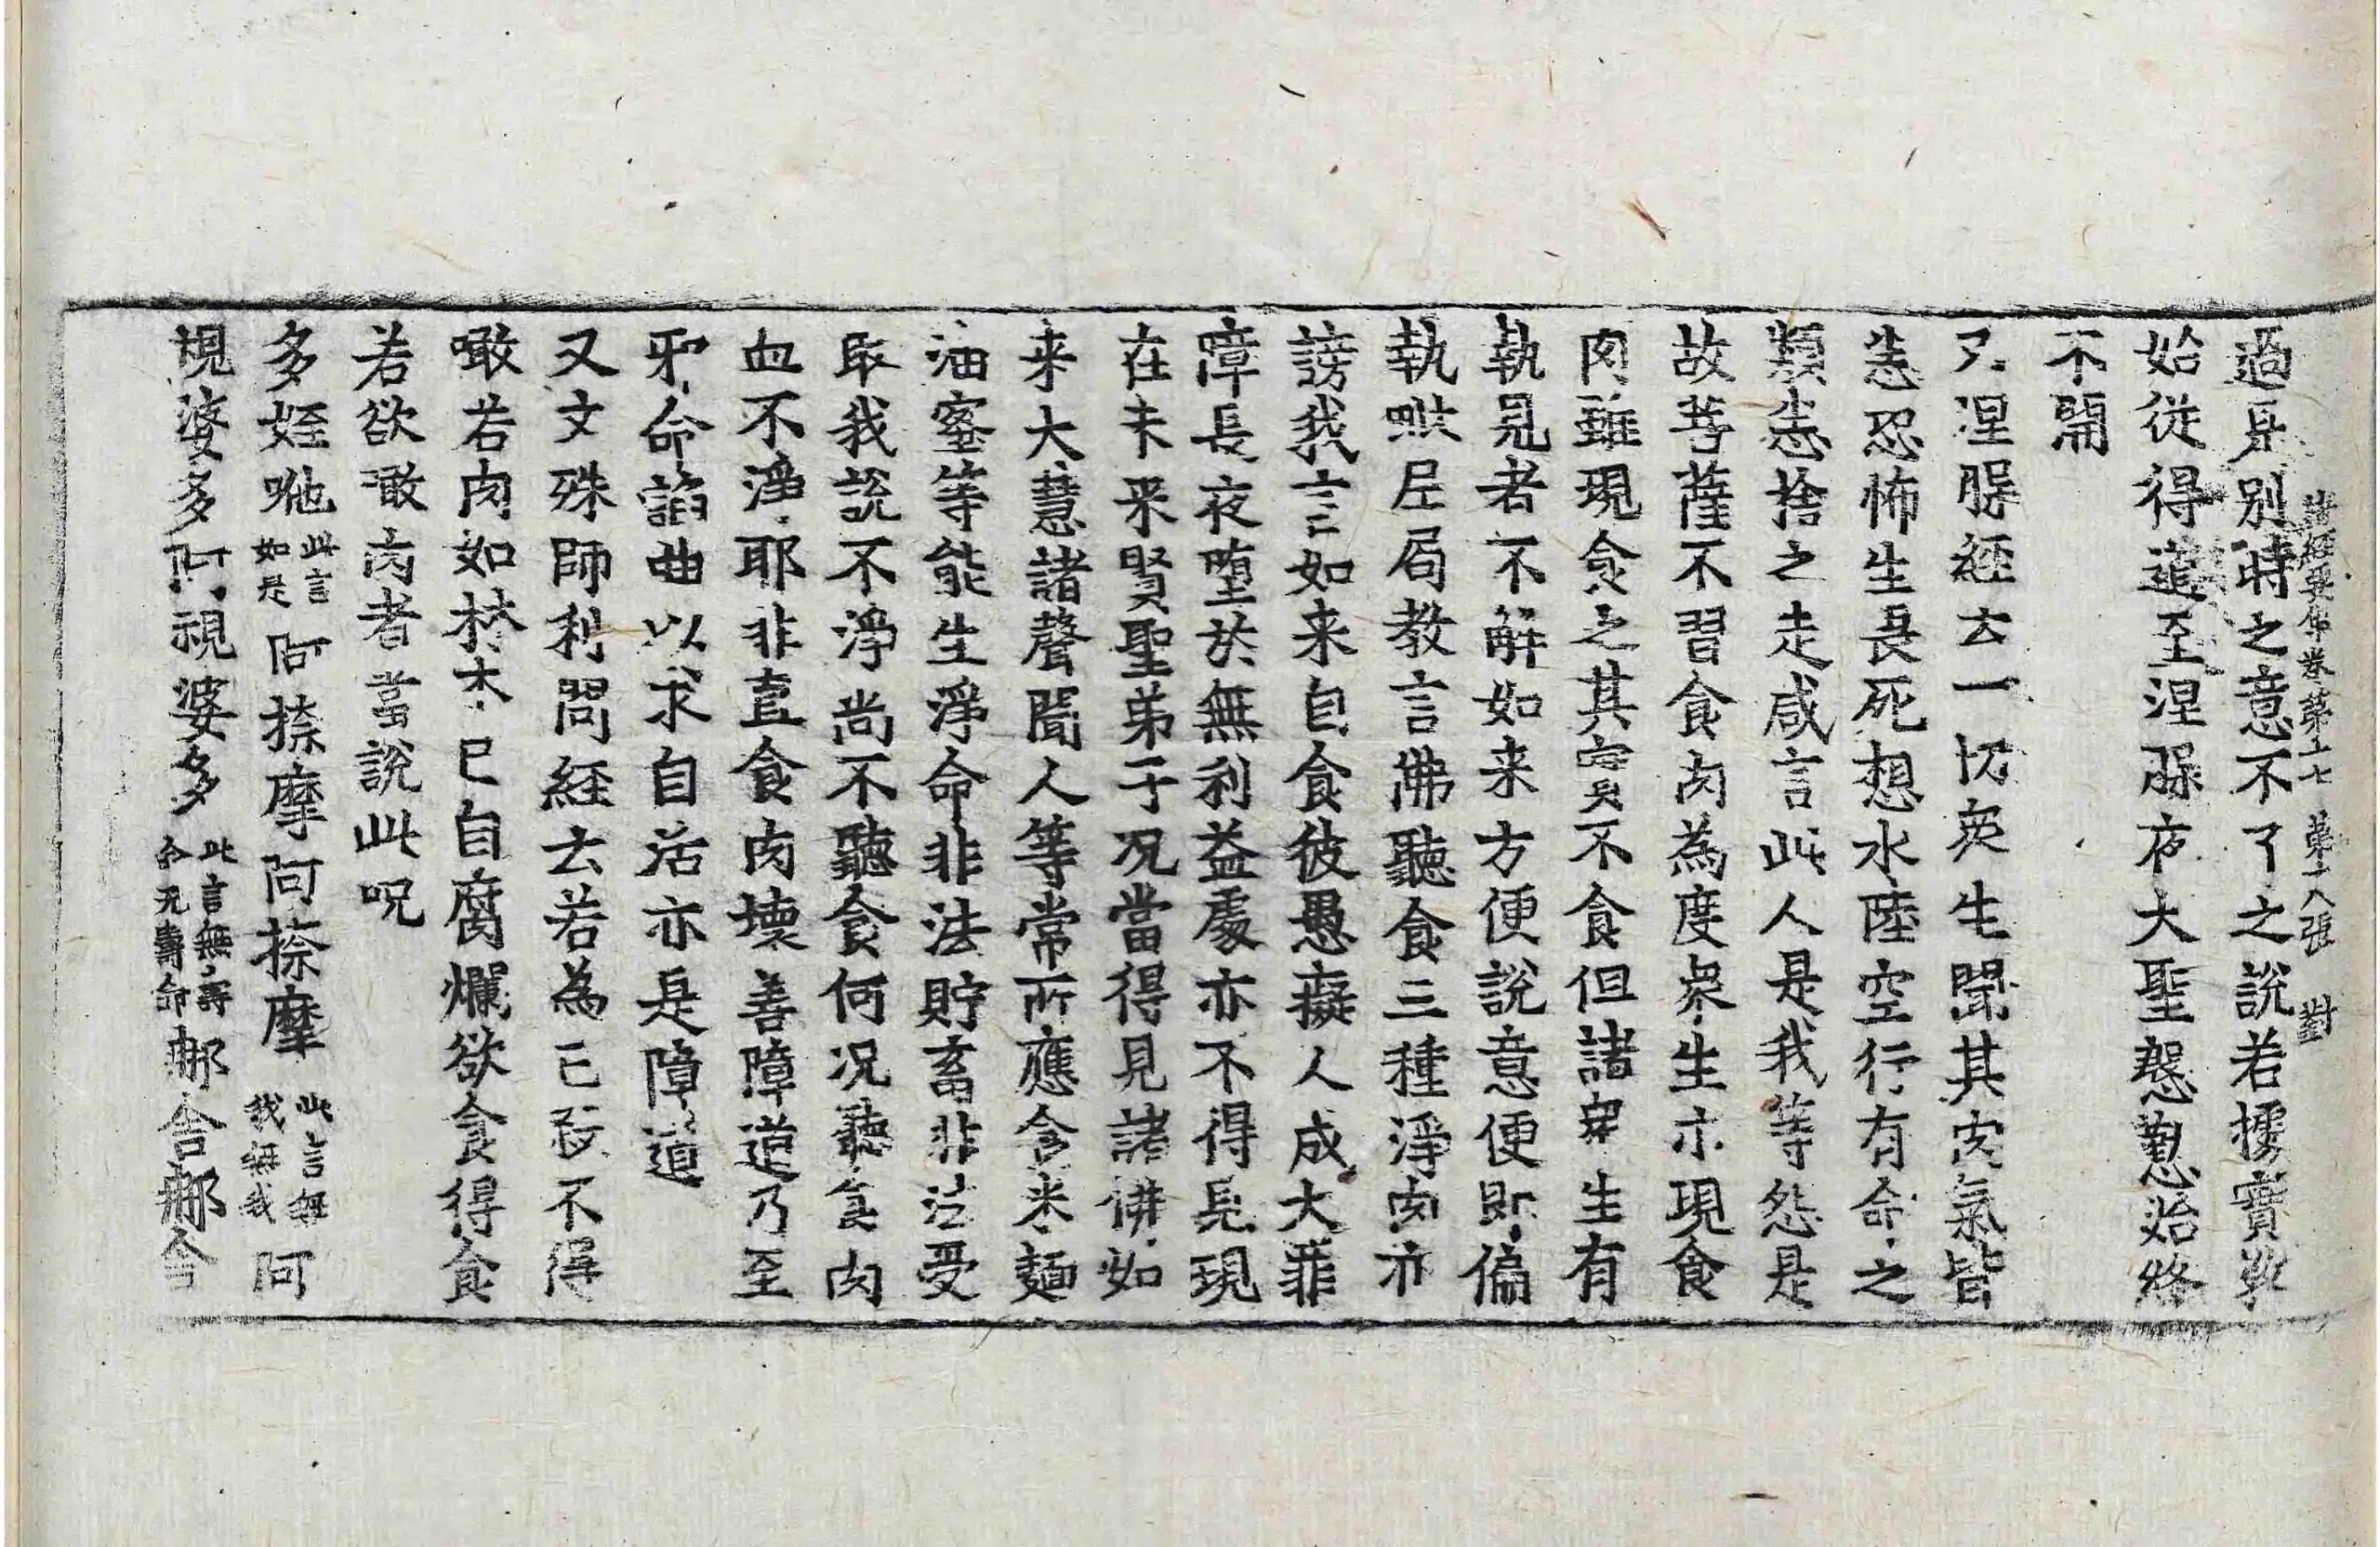 諸經要集卷第十七 第十八張 對
過是別時之意不了之說若據實判
始從得道至涅槃夜大聖慇懃始終
不開
又涅槃經云一切衆生聞其肉氣皆
悉恐怖生畏死想水陸空行有命之
類悉捨之走咸言此人是我等怨是
故菩薩不習食肉為度衆生亦現食
肉雖現食之其實不食但諸衆生有
執見者不解如来方便說意便即偏
執毗尼局教言佛聽食三種淨肉亦
謗我言如来自食彼愚癡人成大罪
障長夜墮於無利益處亦不得見現
在未来賢聖弟子况當得見諸佛如
来大慧諸聲聞人等常所應食米麵
油蜜等能生淨命非法貯畜非法受
取我說不淨尚不聽食何况聽食肉
血不淨耶非直食肉壞善障道乃至
邪命諂曲以求自活亦是障道
又文殊師利問經云若為己殺不得
噉若肉如材木已自腐爛欲食得食
若欲噉肉者當說此呪
多姪咃 此言如是 阿捺摩阿捺摩 此言無我無我 阿
視婆多阿視婆多 此言無壽命无壽命 那舍那舍